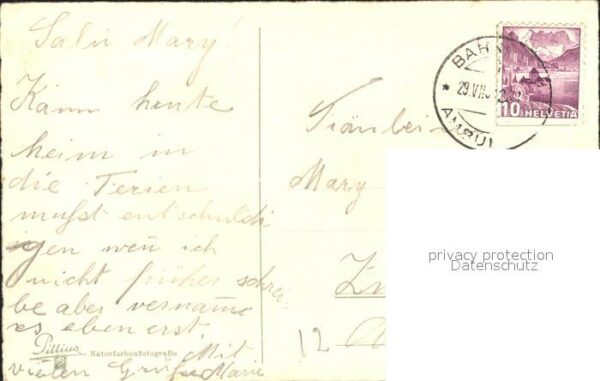 Salü Mary!
Kam heute
heim in
die Ferien
mußt entschuldi
gen wen ich
nicht früher schrei
be aber vernahm
es eben erst.
Mit
vielen Grüßen Marie
Pillius
Naturfarbenfotografie
Fräulein
Mary
12
BAHN
29.VII.
AMBUL
10 HELVETIA
privacy protection
Datenschutz